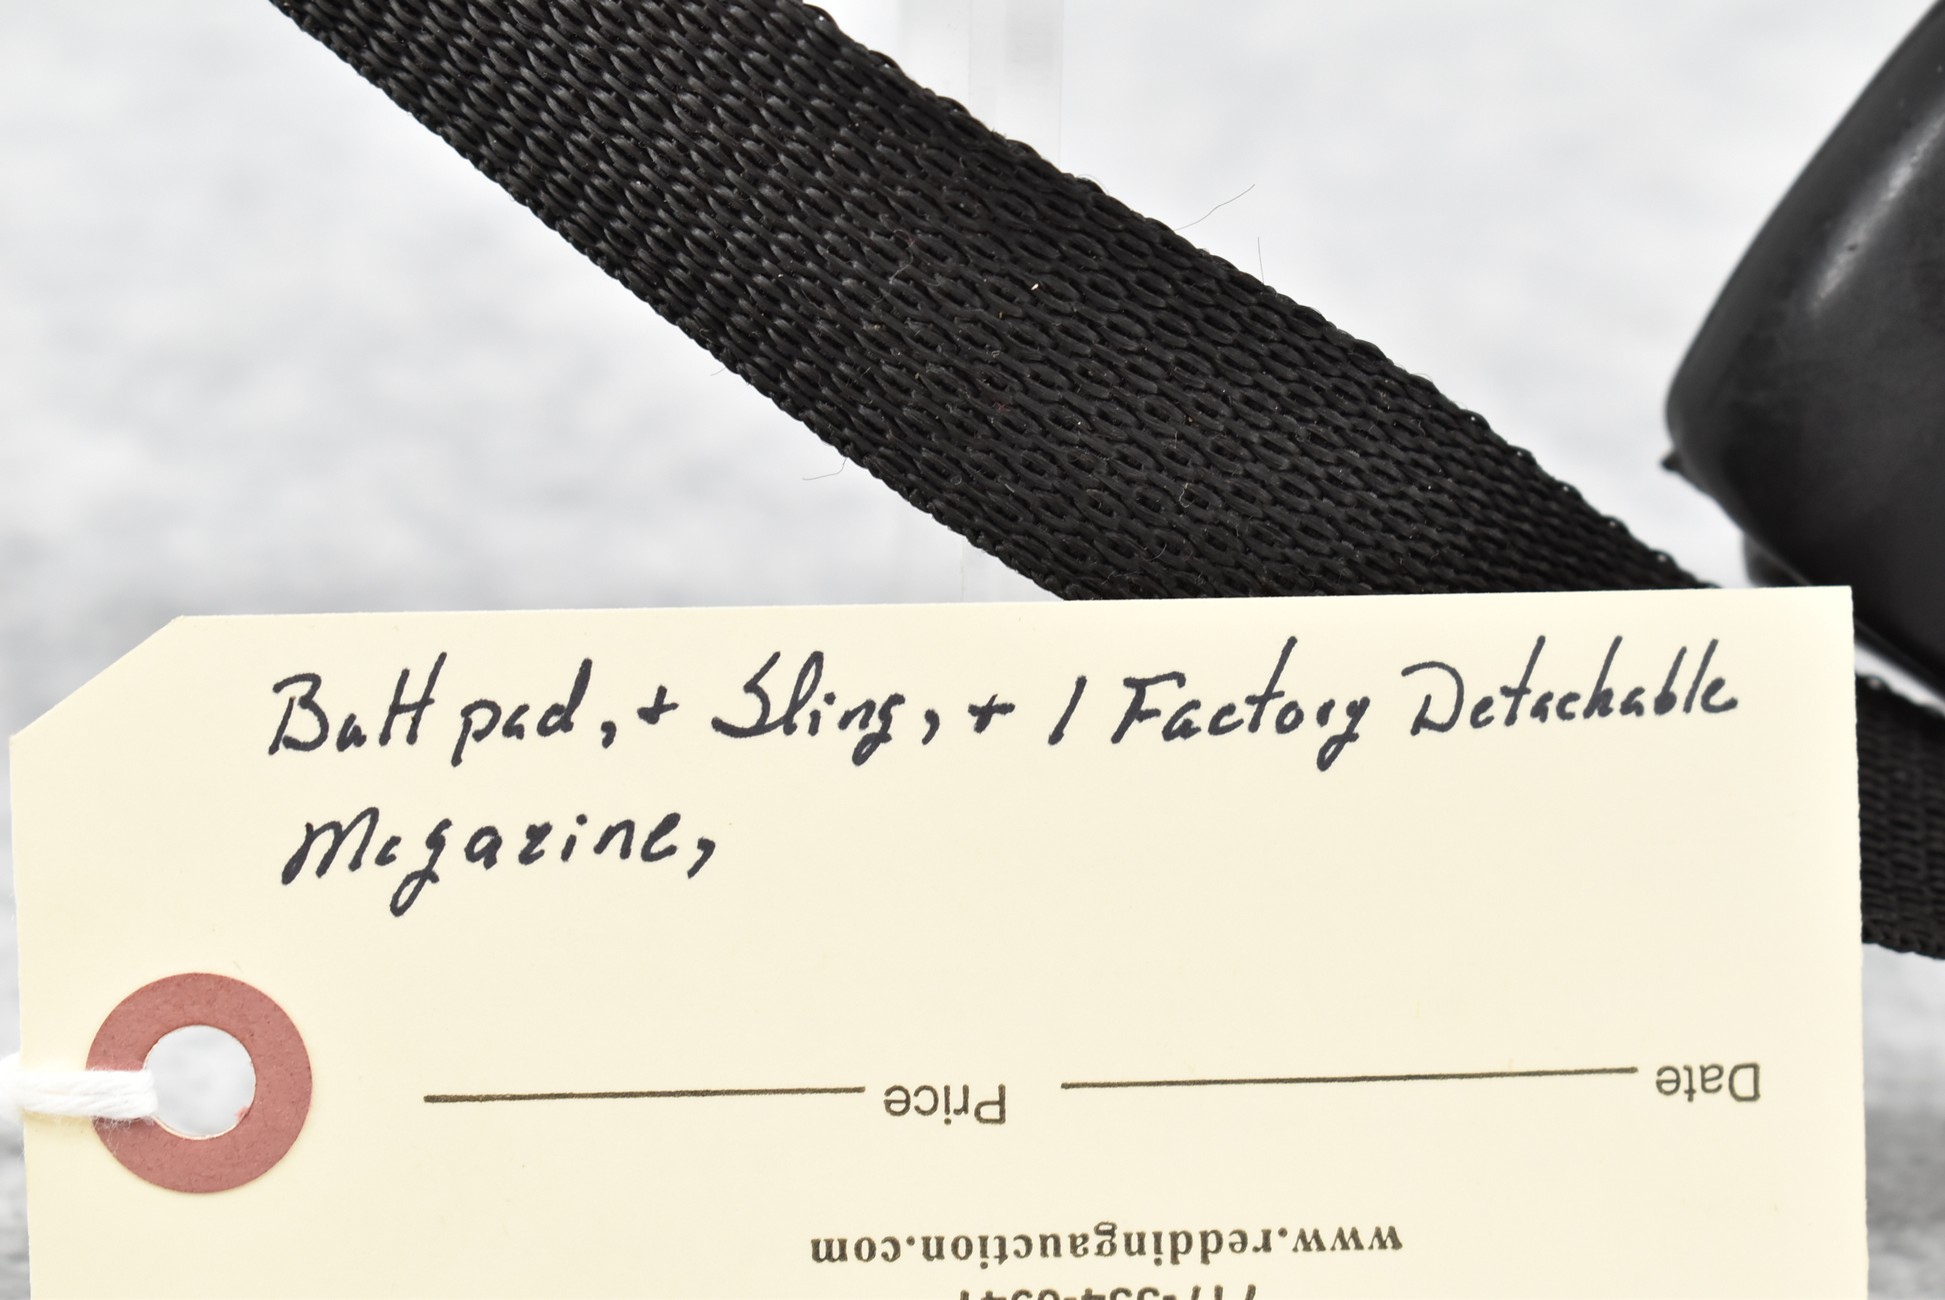 Butt pad, + Sling, + 1 Factory Detachable
Magazine,
Date
Price
www.reddingauction.com